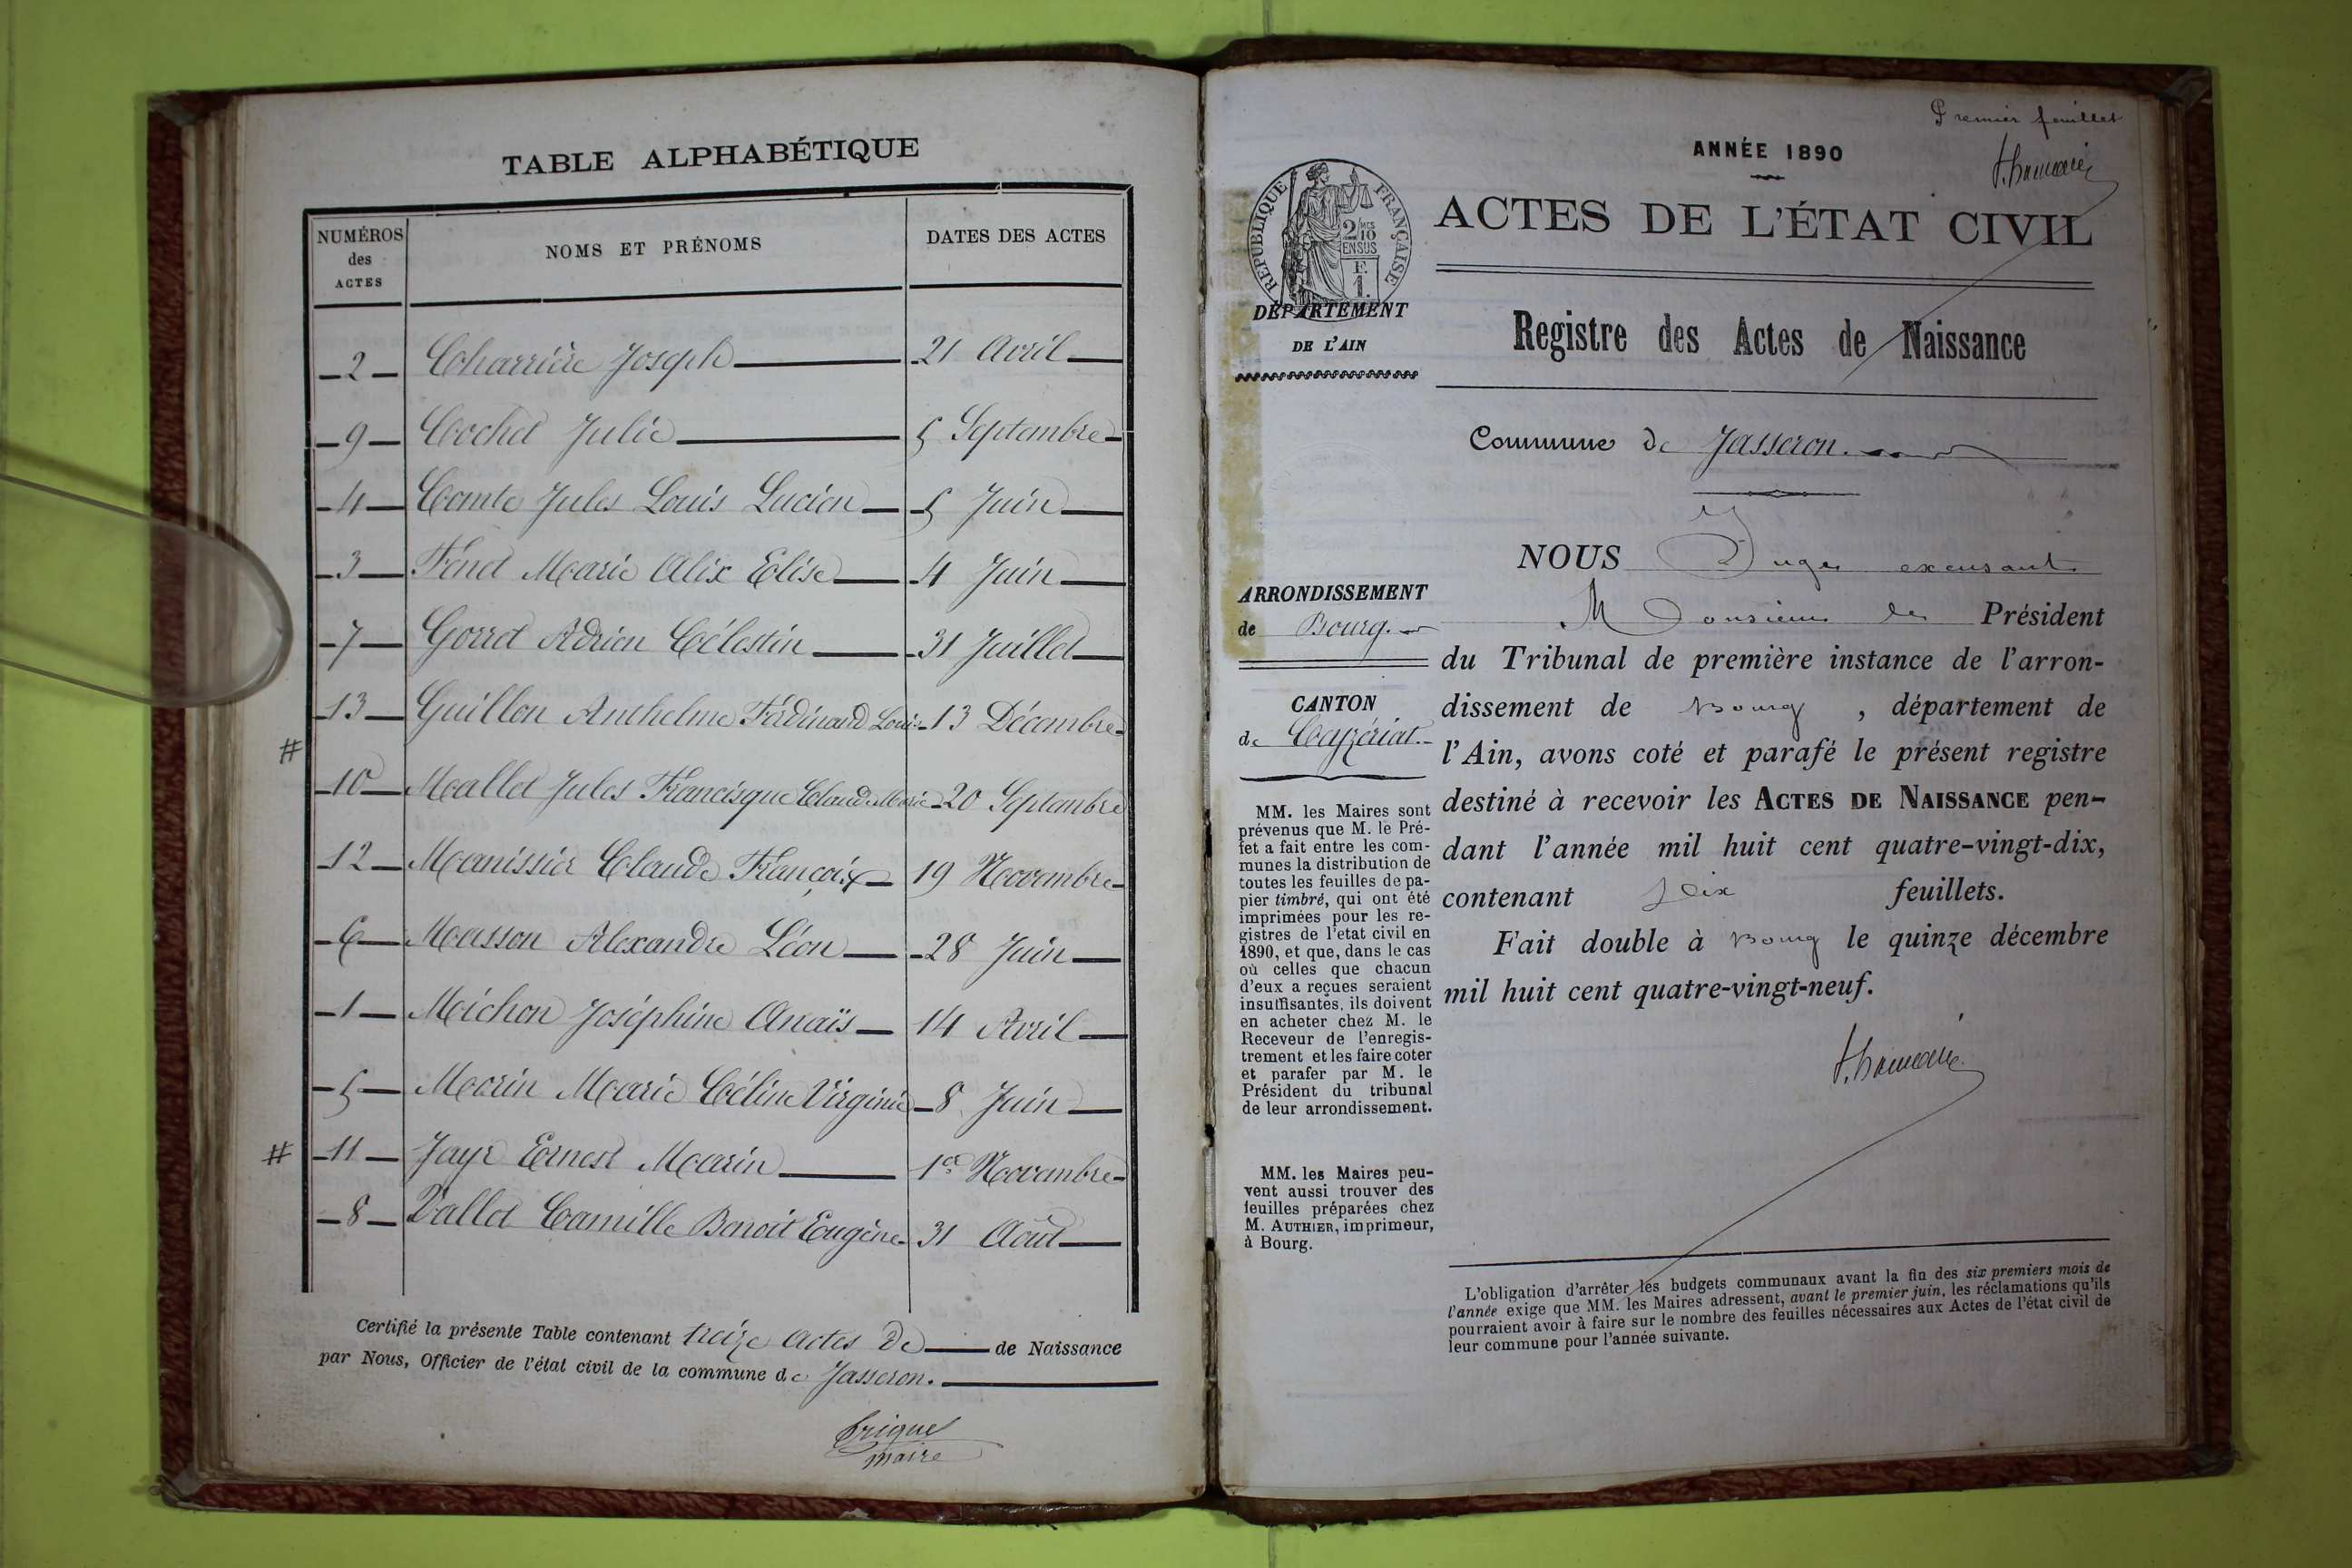 TABLE ALPHABÉTIQUE
NUMÉROS des ACTES
NOMS ET PRÉNOMS
DATES DES ACTES
2 Charrière Joseph 21 Avril
9 Cochet Julie 5 Septembre
4 Comte Jules Louis Lucien 5 Juin
3 Fénet Marie Alix Elise 4 Juin
7 Gorret Adrien Célestin 31 Juillet
13 Guillon Anthelme Ferdinand Louis 13 Décembre
#
10 Mallet Jules Francisque Claude Marie 20 Septembre
12 Manissier Claude François 19 Novembre
6 Masson Alexandre Léon 28 Juin
1 Michon Joséphine Anaïs 14 Avril
5 Morin Marie Céline Virginie 8 Juin
# 11 Jayr Ernest Marin 1er Novembre
8 Vallet Camille Benoit Eugène 31 Août
Certifié la présente Table contenant treize actes de de Naissance
par Nous, Officier de l'état civil de la commune de Jasseron.
maire
Premier feuillet
ANNÉE 1890
ACTES DE L'ÉTAT CIVIL
RÉPUBLIQUE FRANÇAISE
2/10 MES
EN SUS
F.
1.
DÉPARTEMENT
DE L'AIN
Registre des Actes de Naissance
Commune de Jasseron.
ARRONDISSEMENT
de Bourg.
CANTON
de Ceyzériat.
MM. les Maires sont
prévenus que M. le Pré-
fet a fait entre les com-
munes la distribution de
toutes les feuilles de pa-
pier timbré, qui ont été
imprimées pour les re-
gistres de l'etat civil en
1890, et que, dans le cas
où celles que chacun
d'eux a reçues seraient
insuffisantes, ils doivent
en acheter chez M. le
Receveur de l'enregis-
trement et les faire coter
et parafer par M. le
Président du tribunal
de leur arrondissement.
MM. les Maires peu-
vent aussi trouver des
feuilles préparées chez
M. AUTHIER, imprimeur,
à Bourg.
NOUS Juge excusant
Monsieur le Président
du Tribunal de première instance de l'arron-
dissement de Bourg, département de
l'Ain, avons coté et parafé le présent registre
destiné à recevoir les ACTES DE NAISSANCE pen-
dant l'année mil huit cent quatre-vingt-dix,
contenant feuillets.
Fait double à Bourg le quinze décembre
mil huit cent quatre-vingt-neuf.
L'obligation d'arrêter les budgets communaux avant la fin des six premiers mois de
l'année exige que MM. les Maires adressent, avant le premier juin, les réclamations qu'ils
pourraient avoir à faire sur le nombre des feuilles nécessaires aux Actes de l'état civil de
leur commune pour l'année suivante.